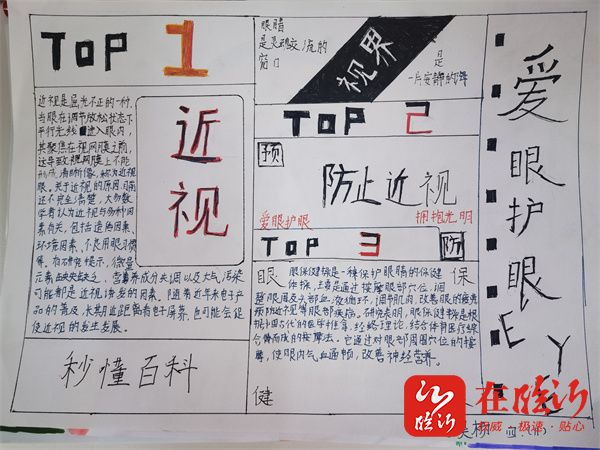 TOP 1
近视是屈光不正的一种,
当眼在调节放松状态下
平行光线进入眼内,
其聚焦在视网膜之前,
这导致视网膜上不能
形成清晰像,称为近视
眼。关于近视的原因,目前
还不完全清楚,大多数
学者认为近视与多种因
素有关,包括遗传因素、
环境因素、不良用眼习惯
等。有研究提示,微量
元素缺乏、营养成分失调以及大气污染
可能都是近视诱发的因素。随着近年来电子产
品的普及,长期近距离看电子屏幕,也可能会促
使近视的发生发展。
近视
秒懂百科
眼睛
是灵魂交流的
窗口
视界
是
一片安静的海
TOP 2
预
防止近视
爱眼护眼
拥抱光明
TOP 3
防
眼
保
健
眼保健操是一种保护眼睛的保健
体操,主要是通过按摩眼部穴位,调
整眼周及头部血液循环,调节肌肉,改善眼的疲劳
预防近视等眼部疾病。研究表明,眼保健操是根
据中国古代的医学推拿,经络理论,结合体育医疗综
合而成的按摩法。它通过对眼部周围穴位的按
摩,使眼内气血通畅,改善神经营养。
爱眼护眼
EY
在临沂
临沂
权威·极速·贴心